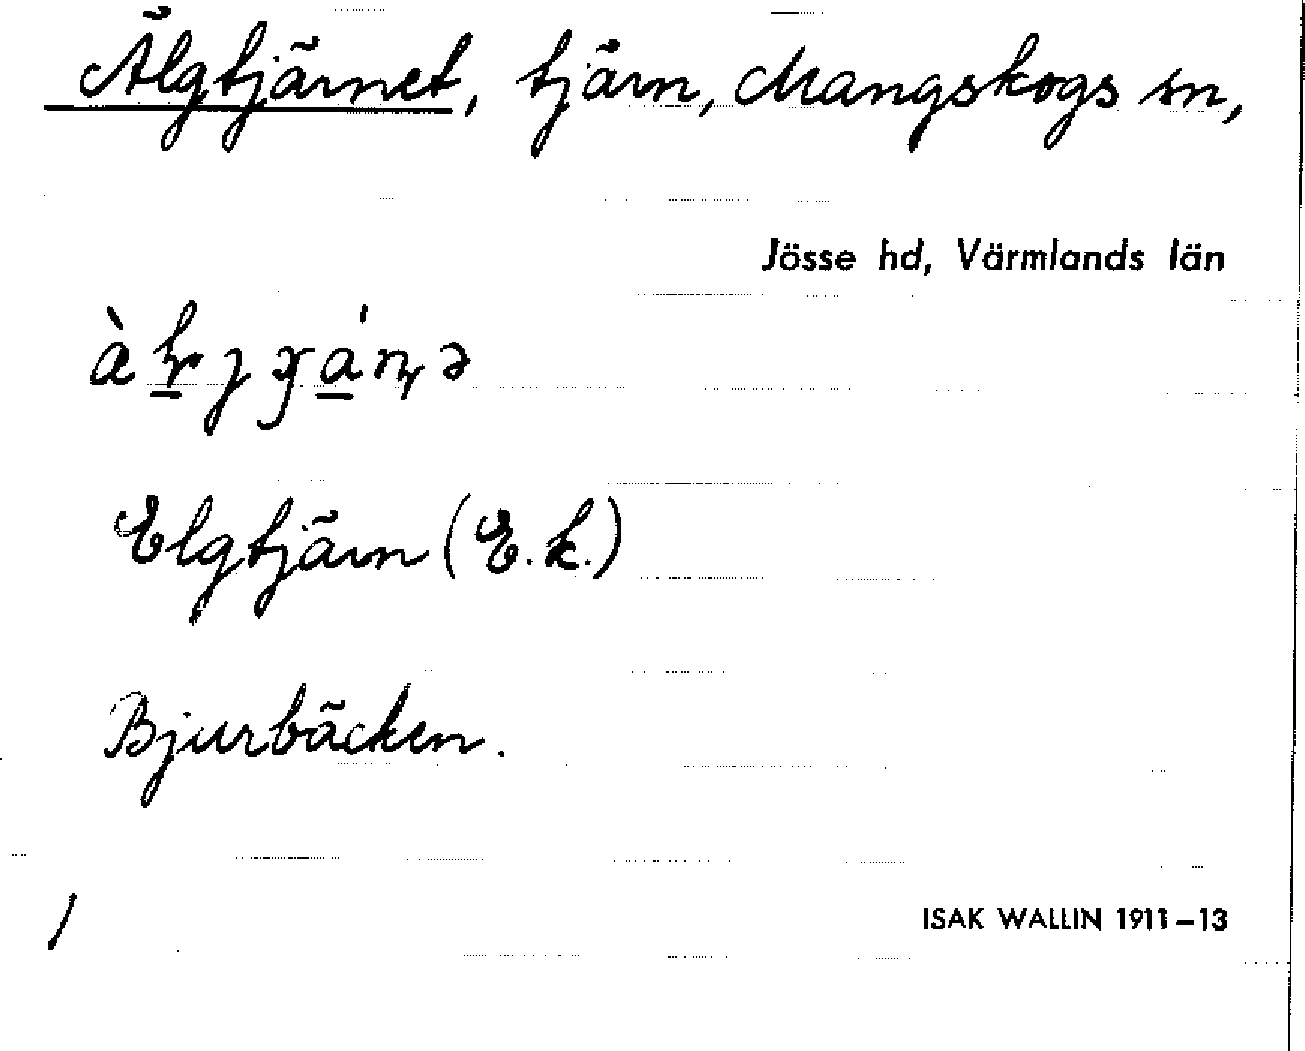 Älgtjärnet, tjärn, Mangskogs sn,
Jösse hd, Värmlands län
Elgtjärn (E.k.)
Bjurbäcken.
/
ISAK WALLIN 1911–13